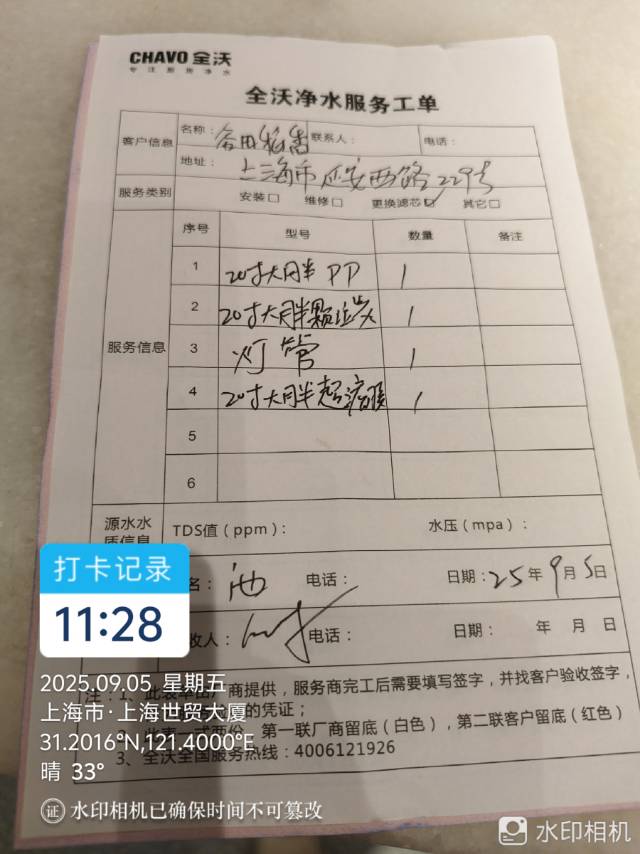 CHAVO 全沃
专注厨房净水
全沃净水服务工单
客户信息 名称： 稻香 联系人： 电话：
地址： 上海市延安西路2299号
服务类别 安装□ 维修□ 更换滤芯☑ 其它□
服务信息 序号 型号 数量 备注
1 20寸大胖PP 1
2 20寸大胖颗粒炭 1
3 灯管 1
4 20寸大胖超滤膜 1
5
6
源水水质信息 TDS值（ppm）： 水压（mpa）：
名： 池 电话： 日期：25年9月5日
收人： 电话： 日期： 年 月 日
注：1、此表单由厂商提供，服务商完工后需要填写签字，并找客户验收签字，
的凭证；
2、此表一式两份，第一联厂商留底（白色），第二联客户留底（红色）
3、全沃全国服务热线：4006121926
打卡记录
11:28
2025.09.05 星期五
上海市·上海世贸大厦
31.2016°N,121.4000°E
晴 33°
证 水印相机已确保时间不可篡改
水印相机